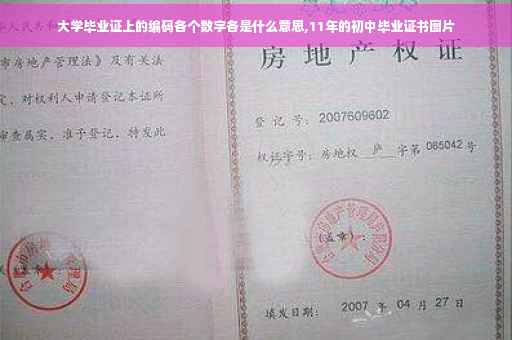 大学毕业证上的编码各个数字各是什么意思,11年的初中毕业证书图片
人民共和
市房地产管理法》及有关法
定,对权利人申请登记本证所
审查属实,准予登记,特发此
房地产权证
登记号: 2007609602
权证字号: 房地权 庐 字第 085042 号
(盖章):
填发日期: 2007 年 04 月 27 日